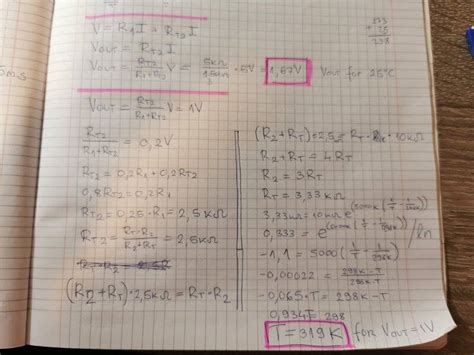 V = R1I + RT2I
VOUT = RT2I
VOUT = RT2/R1+RT2 V = 5kΩ/15kΩ · 5V = 1,67V VOUT for 25°C
298
VOUT = RT2/R1+RT2 V = 1V
RT2/R1+RT2 = 0,2V
RT2 = 0,2R1 + 0,2RT2
0,8RT2 = 0,2R1
RT2 = 0,25 · R1 = 2,5kΩ
RT2 = RT·R2/R2+RT = 2,5kΩ
(R2+RT)·2,5kΩ = RT·R2
R2+RT = 4RT
R2 = 3RT
RT = 3,33kΩ
3,33kΩ = 10kΩ e
0,333 = e /ln
-1,1 = 5000(1/T - 1/298K)
-0,00022 = 298K-T
-0,065·T = 298K-T
0,934T = 298
T = 319K for VOUT = 1V